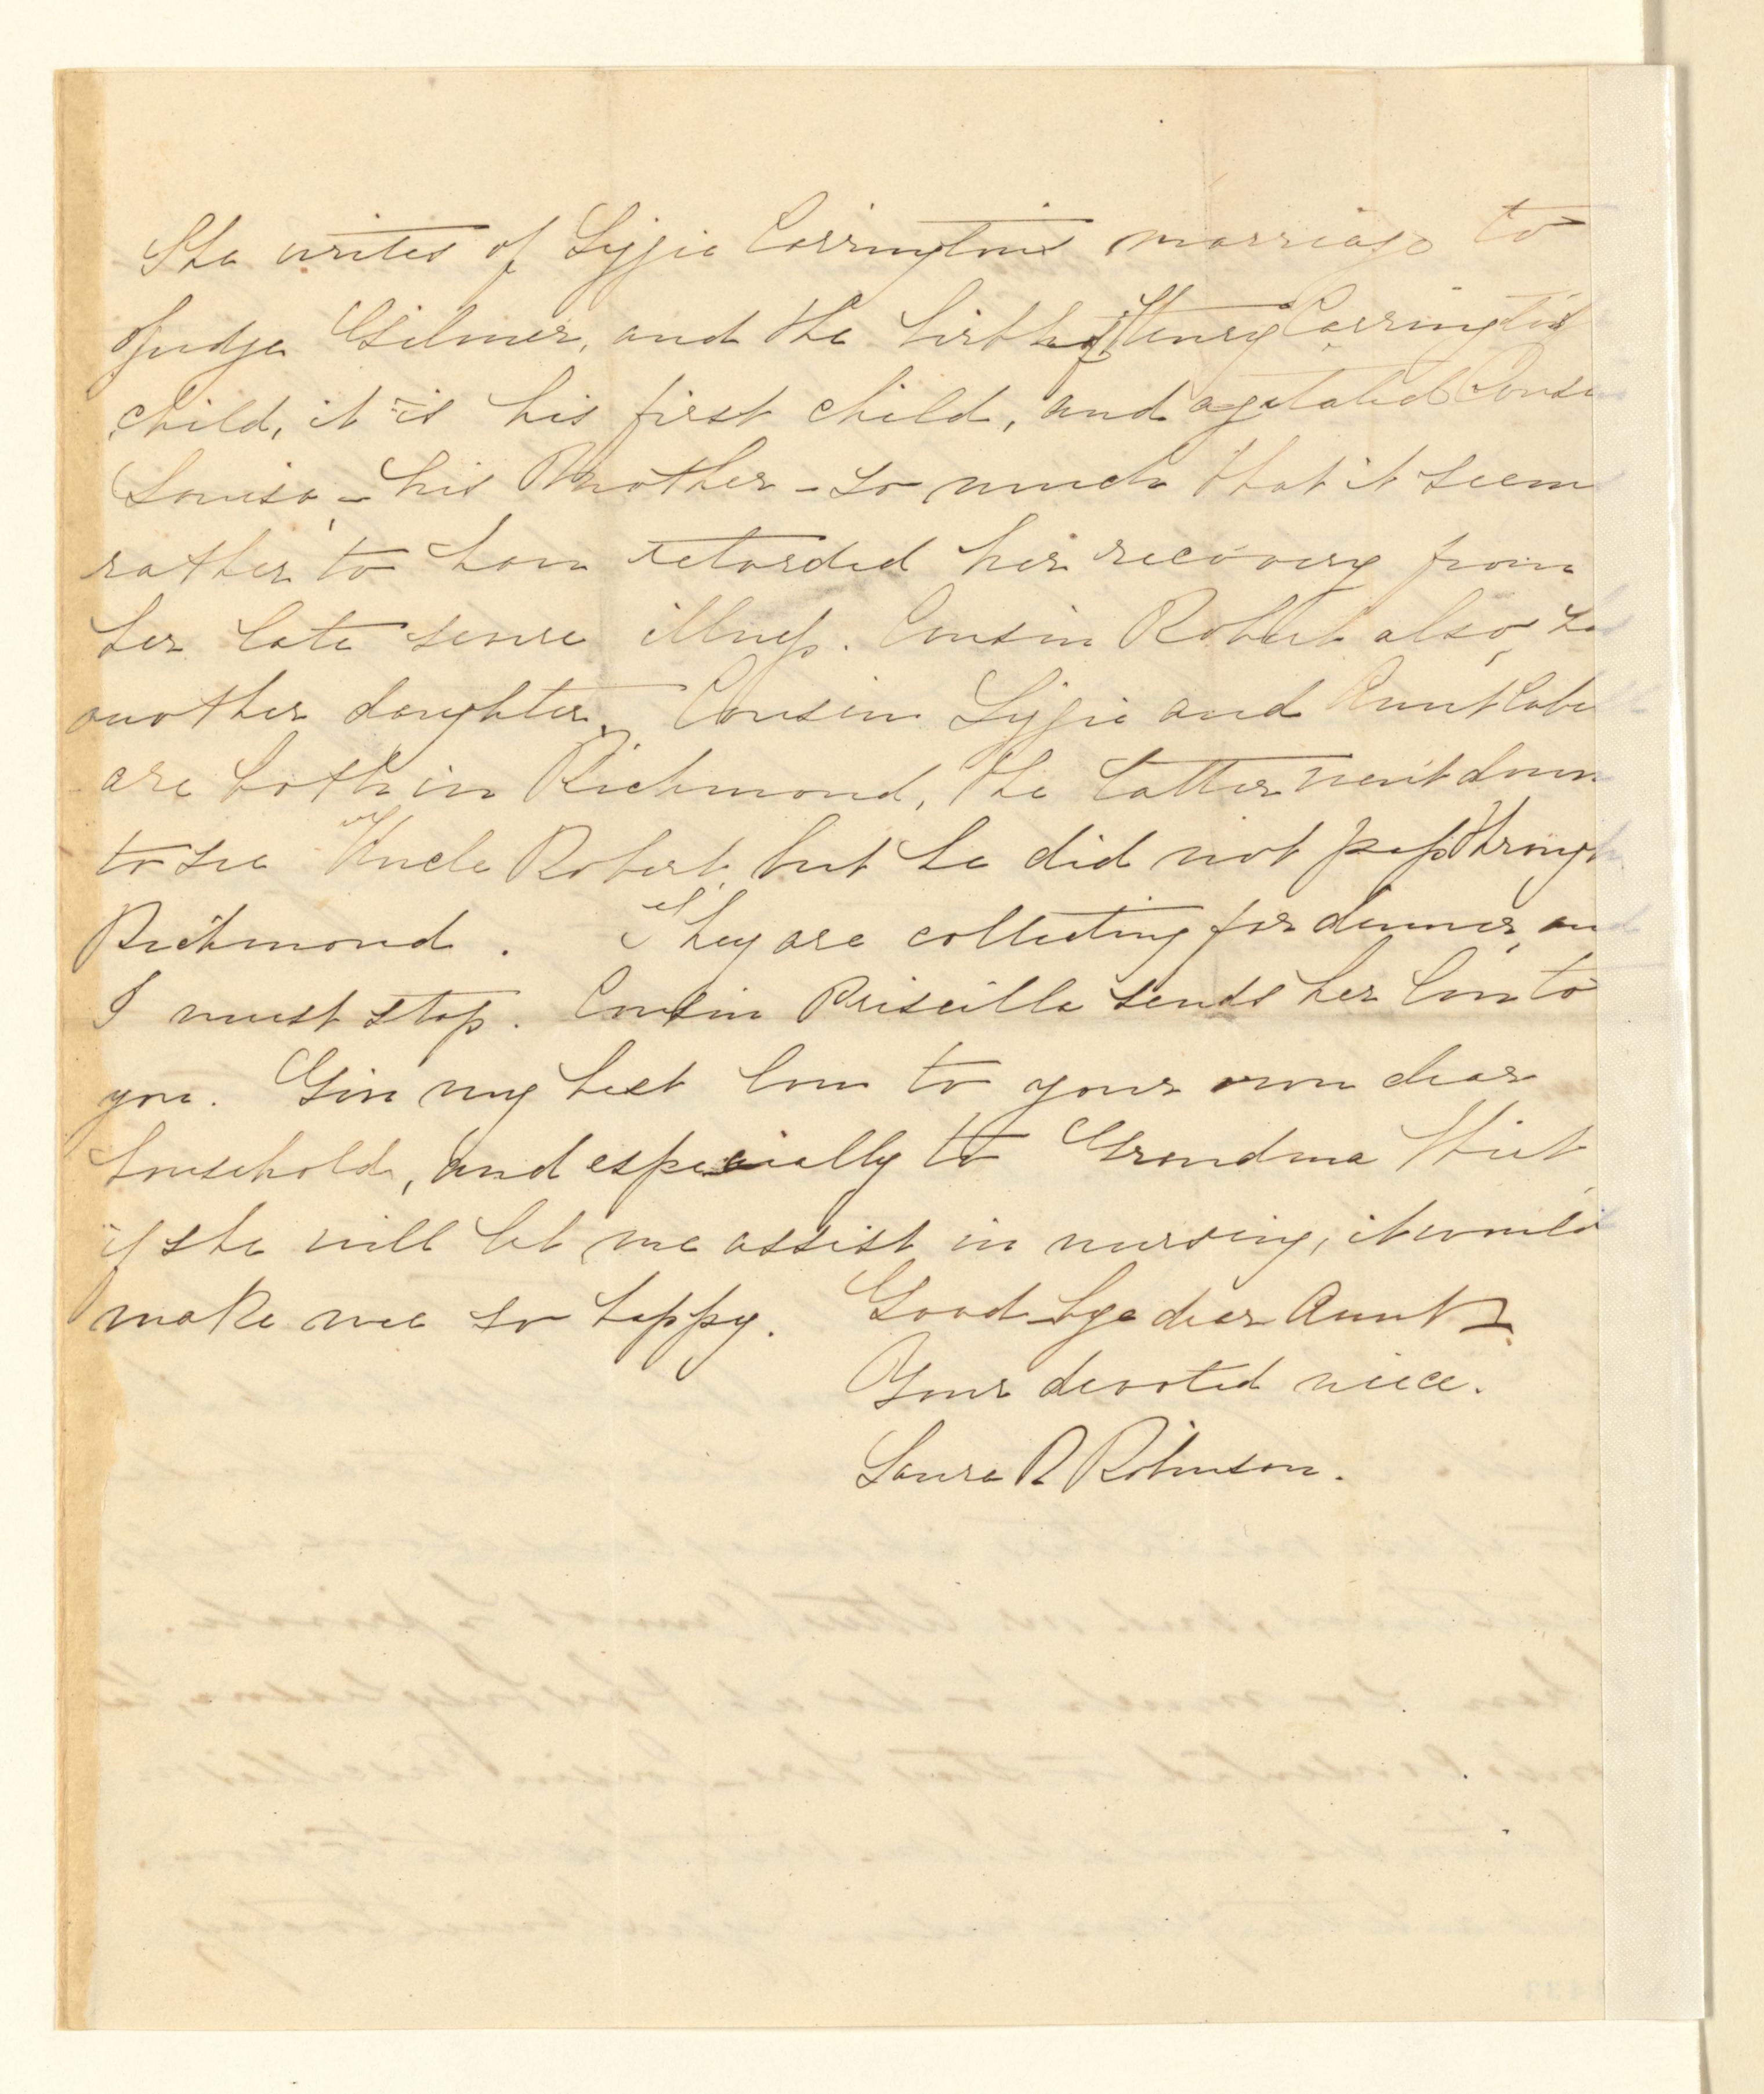 She writes of Lizzie Carrington's marriage to
Judge Gilmer, and the birth of Henry Carrington's
child, it is his first child, and agitated Cousin
Louisa, - his Mother - so much that it seem
rather to have retarded her recovery from
her late severe illness. Cousin Robert also, has
another daughter. Cousin Lizzie and Aunt Cabe
are both in Richmond, the latter went down
to see Uncle Robert, but he did not pass through
Richmond. They are collecting for dinner, and
I must stop. Cousin Priscilla sends her love to
you. Give my best love to your own dear
household, and especially to Grandma
if she will let me assist in nursing, it would
make me so happy. Good-bye dear Aunt
Your devoted niece.
Laura R Robinson.